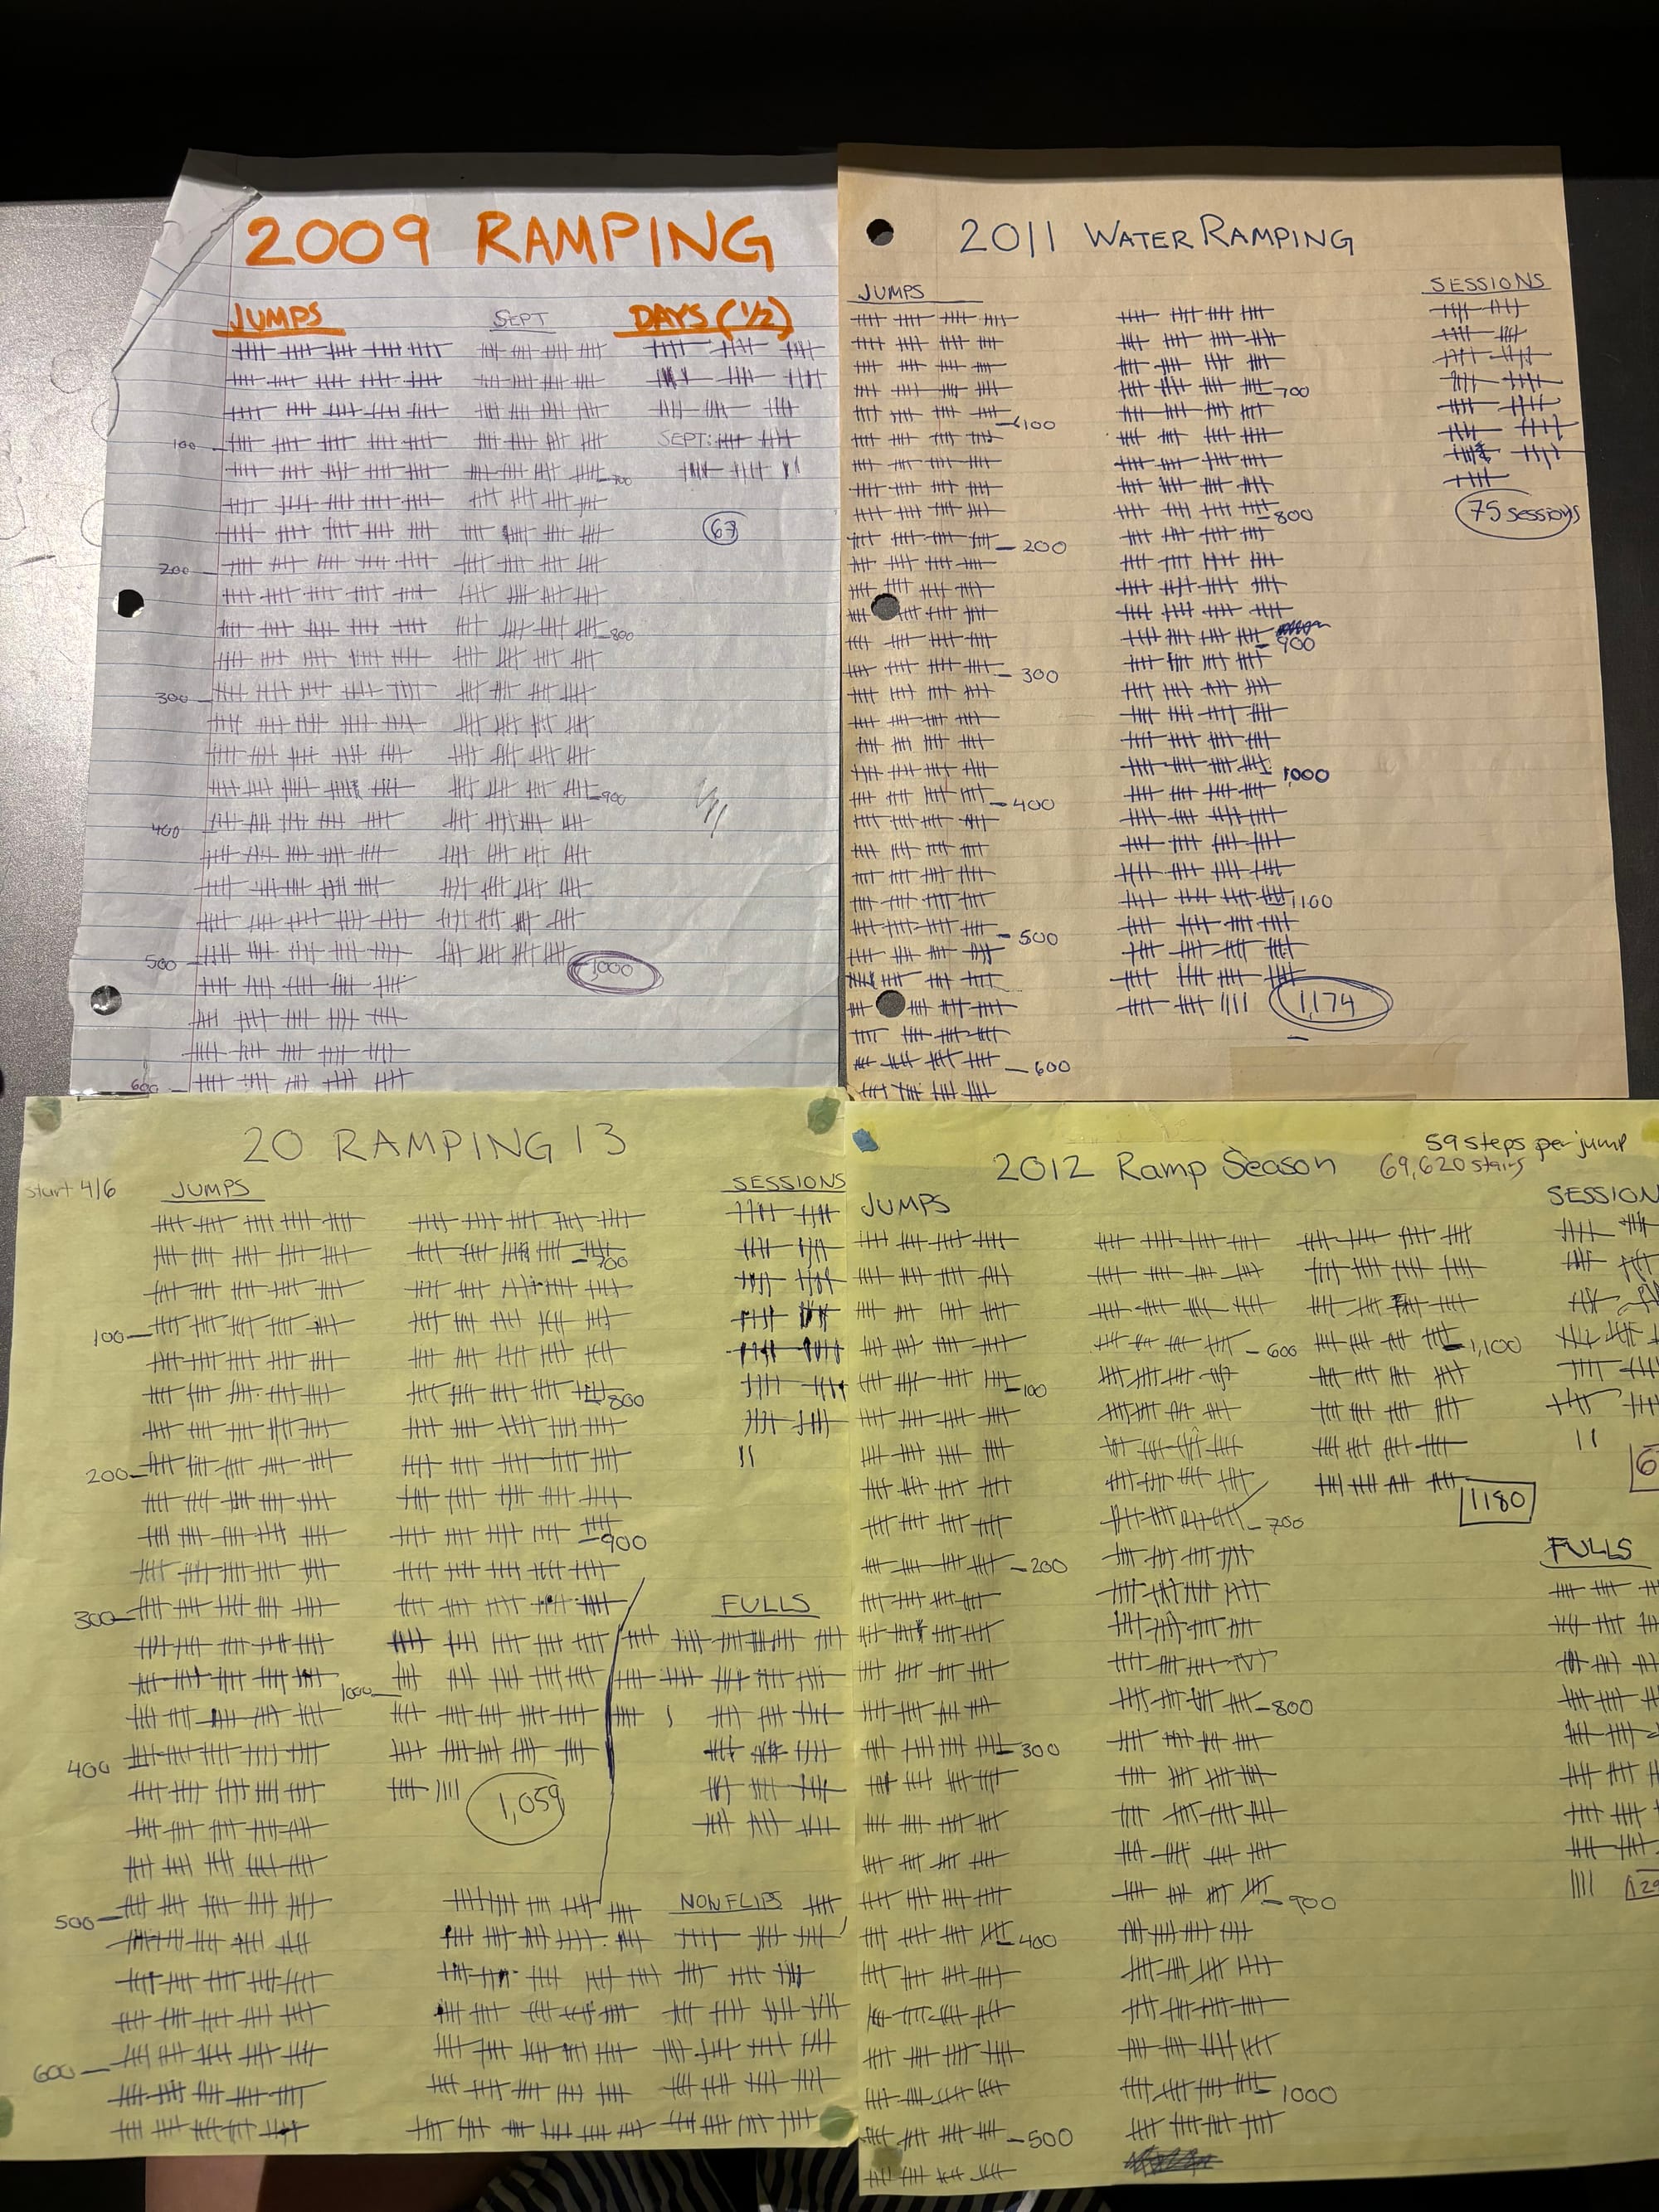 2009 RAMPING
JUMPS
SEPT
DAYS (1/2)
SEPT:
100
700
200
800
300
900
400
500
1000
600
63
2011 WATER RAMPING
JUMPS
SESSIONS
100
200
300
400
500
600
700
800
900
1000
1100
1,174
75 sessions
20 RAMPING 13
start 4/6
JUMPS
SESSIONS
100
200
300
400
500
600
700
800
900
1000
1,059
FULLS
NON FLIPS
2012 Ramp Season
59 steps per jump
69,620 stairs
JUMPS
SESSION
100
200
300
400
500
600
700
800
900
1000
1,100
1180
6
FULLS